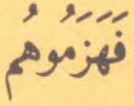 فَهَزَمُوهُم